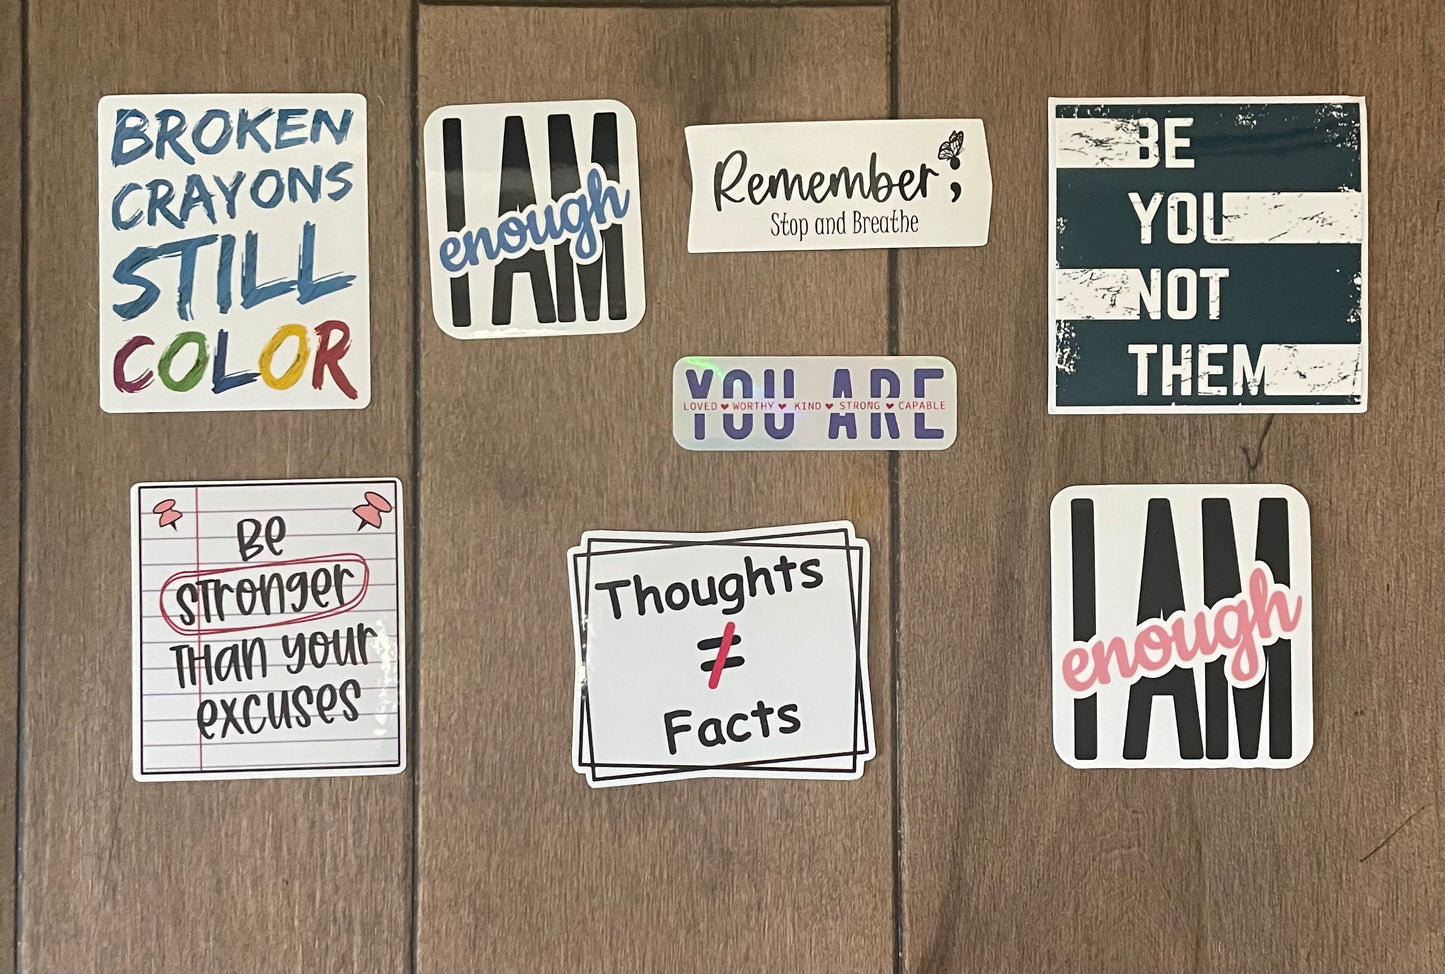 BROKEN
CRAYONS
STILL
COLOR
I AM
enough
Remember;
Stop and Breathe
BE
YOU
NOT
THEM
YOU ARE
LOVED ♥ WORTHY ♥ KIND ♥ STRONG ♥ CAPABLE
Be
stronger
than your
excuses
Thoughts
≠
Facts
I AM
enough